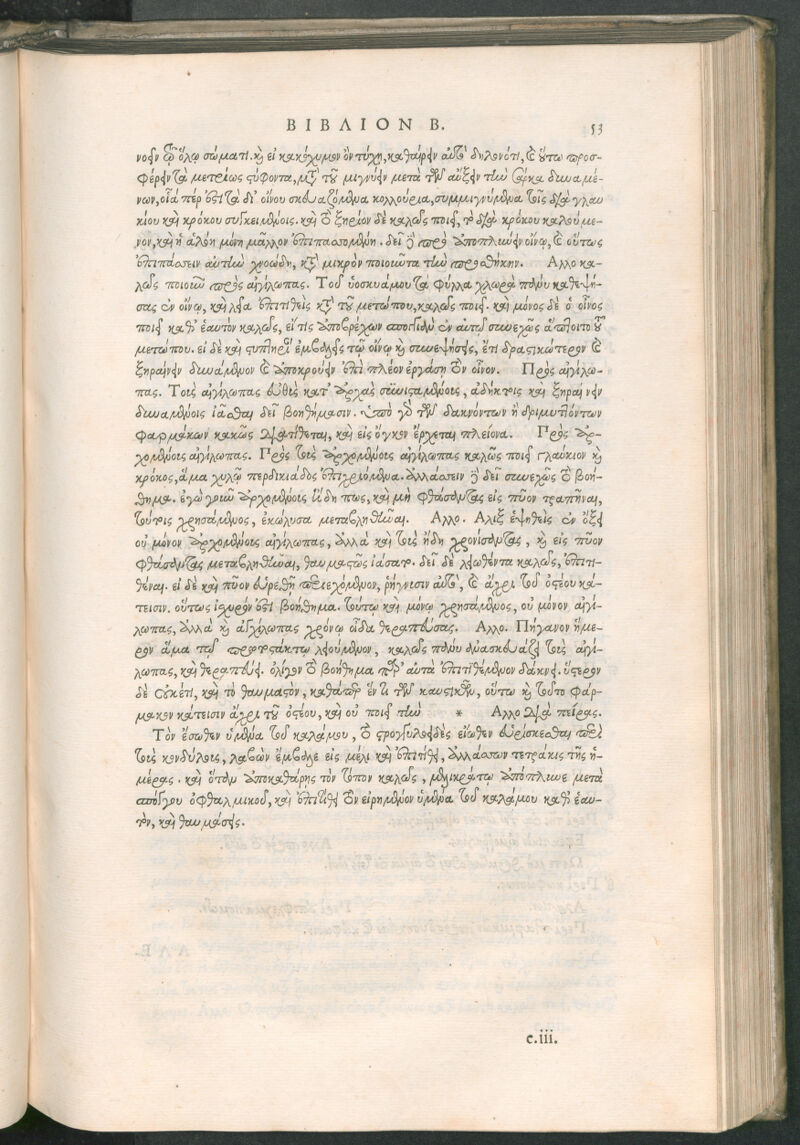 ΒΙΒΛΙΟΝ Β. 53
νοῦν τῷ ὅλῳ σώματι. καὶ εἰ κακόχυμον ὂν τύχῃ, καθαίρειν αὐτὸ δηλονότι, καὶ οὕτω προσ-
φέρειν τὰ μετρίως στύφοντα, μετὰ τοῦ μιγνύειν μετὰ τῶν αὔξειν τὴν σάρκα δυναμέ-
νων, οἷά πέρ ἐστι τὰ δι' οἴνου σκευαζόμενα κολλούρια, συμμιγνύμενα τοῖς διὰ γλαυ
κίου καὶ κρόκου συγκειμένοις. καὶ τὸ ξηρίον δὲ καλῶς ποιεῖ, τὸ διὰ κρόκου καλούμε-
νον, καὶ ἡ ἀλόη μόνη μᾶλλον ἐπιπασσομένη. δεῖ δὲ πρὸς ἀποπλύνειν οἴνῳ, καὶ οὕτως
ἐπιπάσσειν αὐτὴν χνοώδη, κατὰ μικρὸν ποιοῦντα τὴν προσθήκην. Ἄλλο κα-
λῶς ποιοῦν πρὸς αἰγίλωπας. Τοῦ ὑοσκυάμου τὰ φύλλα χλωρὰ πάνυ καθεψή-
σας ἐν οἴνῳ, καὶ λεῖα ἐπιτιθεὶς κατὰ τοῦ μετώπου, καλῶς ποιεῖ. καὶ μόνος δὲ ὁ οἶνος
ποιεῖ καθ' ἑαυτὸν καλῶς, εἴ τις ἀποβρέχων σπόγγον ἐν αὐτῷ συνεχῶς ἅπτοιτο τοῦ
μετώπου. εἰ δὲ καὶ στυπτηρίαν ἐμβαλεῖς τῷ οἴνῳ καὶ συνεψήσεις, ἔτι δραστικώτερον καὶ
ξηραίνειν δυνάμενον καὶ ἀποκρούειν ἐπὶ πλέον ἐργάσῃ τὸν οἶνον. Πρὸς αἰγίλω-
πας. Τοὺς αἰγίλωπας εὐθὺς κατ' ἀρχὰς συνισταμένους, ἀδήκτοις καὶ ξηραίνειν
δυναμένοις ἰᾶσθαι δεῖ βοηθήμασιν. ὑπὸ γὰρ τῶν δακνόντων ἢ δριμυττόντων
φαρμάκων κακῶς διατίθεται, καὶ εἰς ὄγκον ἔρχεται πλείονα. Πρὸς ἀρ-
χομένους αἰγίλωπας. Πρὸς τοὺς ἀρχομένους αἰγίλωπας καλῶς ποιεῖ γλαύκιον καὶ
κρόκος, ἅμα χυλῷ περδικιάδος ἐπιχριόμενα. ἀλλάσσειν δὲ δεῖ συνεχῶς τὸ βοή-
θημα. ἐγὼ γοῦν ἀρχομένους ἤδη πως, καὶ μὴ φθάσαντας εἰς πῦον τραπῆναι,
τούτοις χρησάμενος, ἐκώλυσα μεταβληθῆναι. Ἄλλο. Ἄλιξ ἑψηθεὶς ἐν ὄξει
οὐ μόνον ἀρχομένους αἰγίλωπας, ἀλλὰ καὶ τοὺς ἤδη χρονίσαντας, καὶ εἰς πῦον
φθάσαντας μεταβληθῆναι, θαυμαστῶς ἰάσατο. δεῖ δὲ λειωθέντα καλῶς, ἐπιτι-
θέναι. εἰ δὲ καὶ πῦον εὑρεθῇ περιεχόμενον, ῥήγνυσιν αὐτὸ, καὶ ἄχρι τοῦ ὀστέου κά-
τεισιν. οὕτως ἰσχυρόν ἐστι βοήθημα. τούτῳ καὶ μόνῳ χρησάμενος, οὐ μόνον αἰγί-
λωπας, ἀλλὰ καὶ ἀγχίλωπας χρόνῳ οἶδα θεραπεύσας. Ἄλλο. Πήγανον ἥμε-
ρον ἅμα τῷ προφυράκτῳ λειούμενον, καλῶς πάνυ διασκευάζει τοὺς αἰγί-
λωπας, καὶ θεραπεύει. ὀλίγον τὸ βοήθημα παρ' αὐτὰ ἐπιτιθέμενον δάκνει. ὕστερον
δὲ οὐκέτι, καὶ τὸ θαυμαστὸν, καθάπερ ἕν τι τῶν καυστικῶν, οὕτω καὶ τοῦτο φάρ-
μακον κάτεισιν ἄχρι τοῦ ὀστέου, καὶ οὐ ποιεῖ τὴν * Ἄλλο διὰ πείρας.
Τὸν ἔσωθεν ὑμένα τοῦ καλάμου, τὸ στρογγυλοειδὲς εἴωθεν εὑρίσκεσθαι περὶ
τοὺς κονδύλους, λαβὼν ἔμβαλε εἰς μέλι καὶ ἐπιτίθει, ἀλλάσσων τετράκις τῆς ἡ-
μέρας. καὶ ὅταν ἀποκαθάρῃς τὸν τόπον καλῶς, μελικράτῳ ἀπόπλυνε μετὰ
σπόγγου ὀφθαλμικοῦ, καὶ ἐπιτίθει τὸν εἰρημένον ὑμένα τοῦ καλάμου καθ' ἑαυ-
τὸν, καὶ θαυμάσεις.
c.iii.